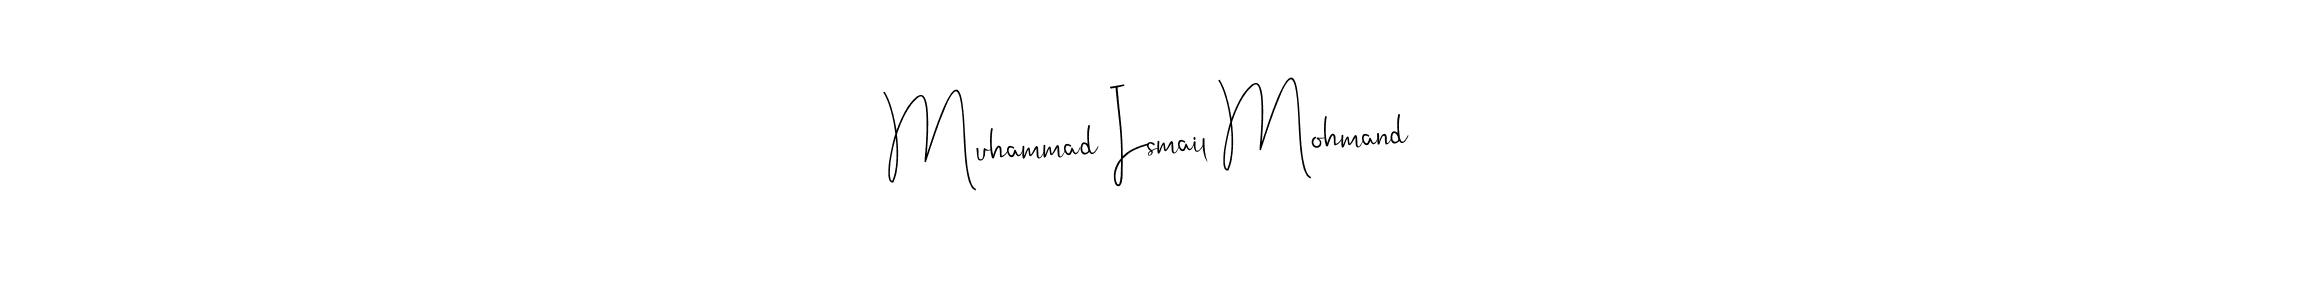 Muhammad Ismail Mohmand